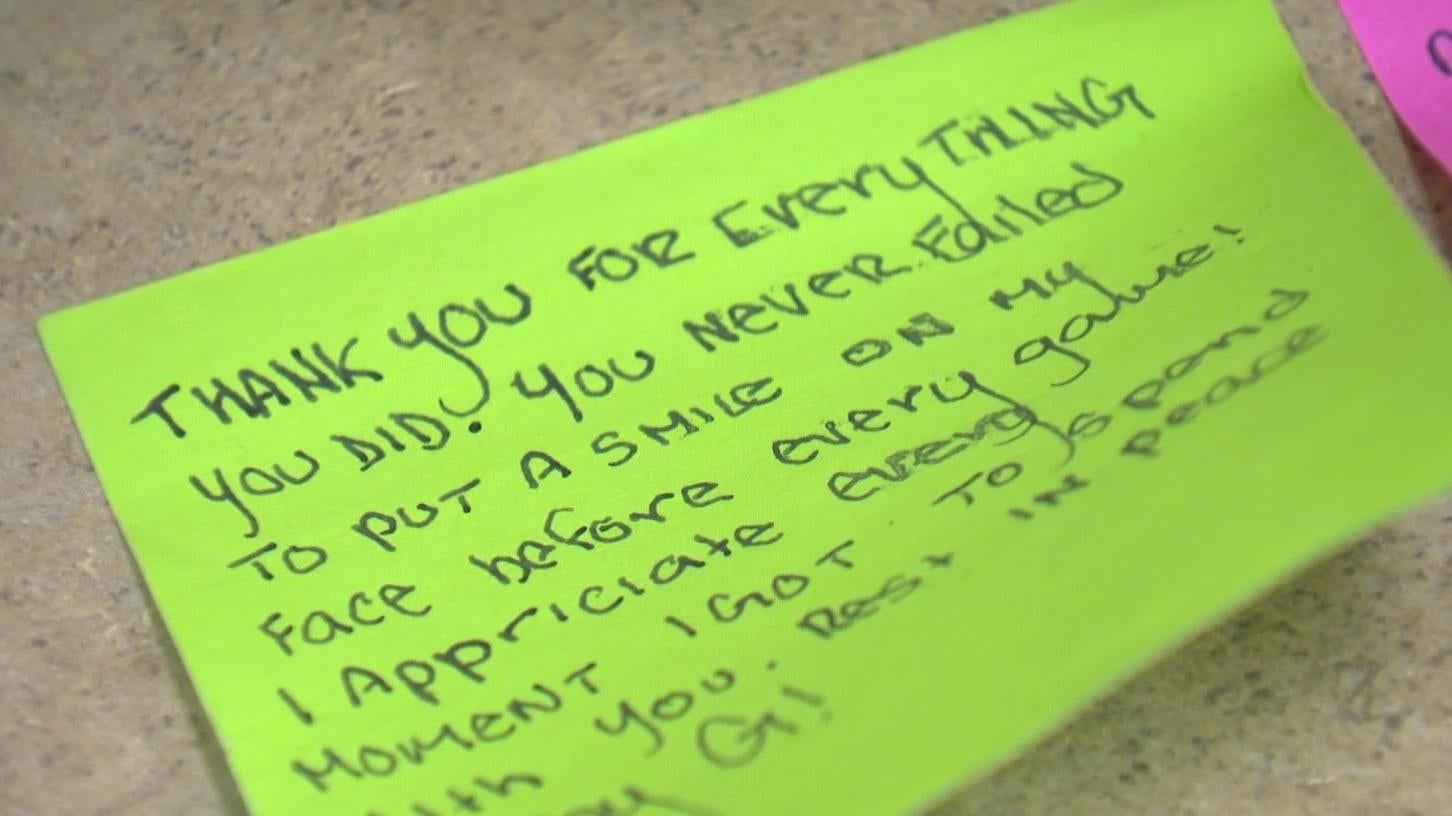 THANK YOU FOR EveryTHING
YOU DID! YOU NEVER Failed
TO PUT A SMILE ON MY
Face before every game!
I Appriciate every
MOMENT I GOT TO spand
with you. Rest IN peace
G!